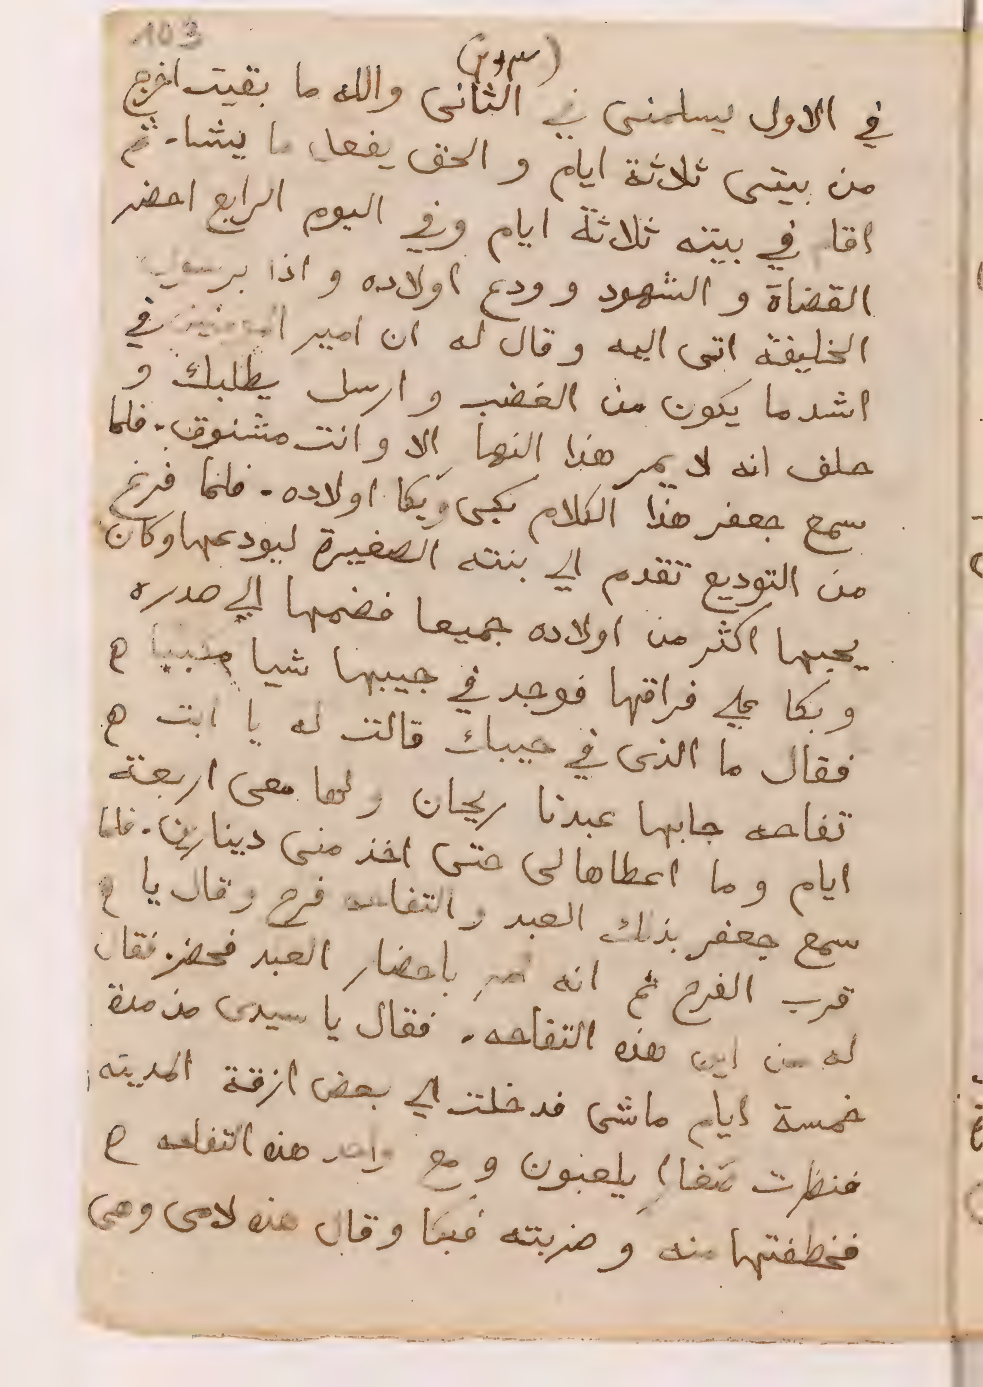 103
في الاول يسلمنى في الثانى والله ما بقيت اخرج
من بيتى ثلاثة ايام و الحق يفعل ما يشا. ثم
اقام في بيته ثلاثة ايام وفي اليوم الرابع احضر
القضاة و الشهود و ودع اولاده و اذا برسول
الخليفة اتى اليه و قال له ان امير المومنين في
اشد ما يكون من الغضب و ارسل يطلبك و
حلف انه لا يمر هذا النهار الا و انت مشنوق. فلما
سمع جعفر هذا الكلام بكى وبكا اولاده. فلما فرغ
من التوديع تقدم الي بنته الصغيرة ليودعها وكان
يحبها اكثر من اولاده جميعا فضمها الي صدره
و بكا علي فراقها فوجد في جيبها شيا
فقال ما الذى في جيبك قالت له يا ابت
تفاحه جابها عبدنا ريحان ولها معى اربعة
ايام و ما اعطاها لى حتى اخذ منى دينارين. فلما
سمع جعفر بذلك العبد و التفاحه فرح و قال يا
قرب الفرج ثم انه امر باحضار العبد فحضر فقال
له من اين هذه التفاحه. فقال يا سيدى من مدة
خمسة ايام ماشى فدخلت الي بعض ازقة المدينه
فنظرت صغار يلعبون و مع واحد هذه التفاحه
فخطفتها منه و ضربته فبكا و قال هذه لامى وهى